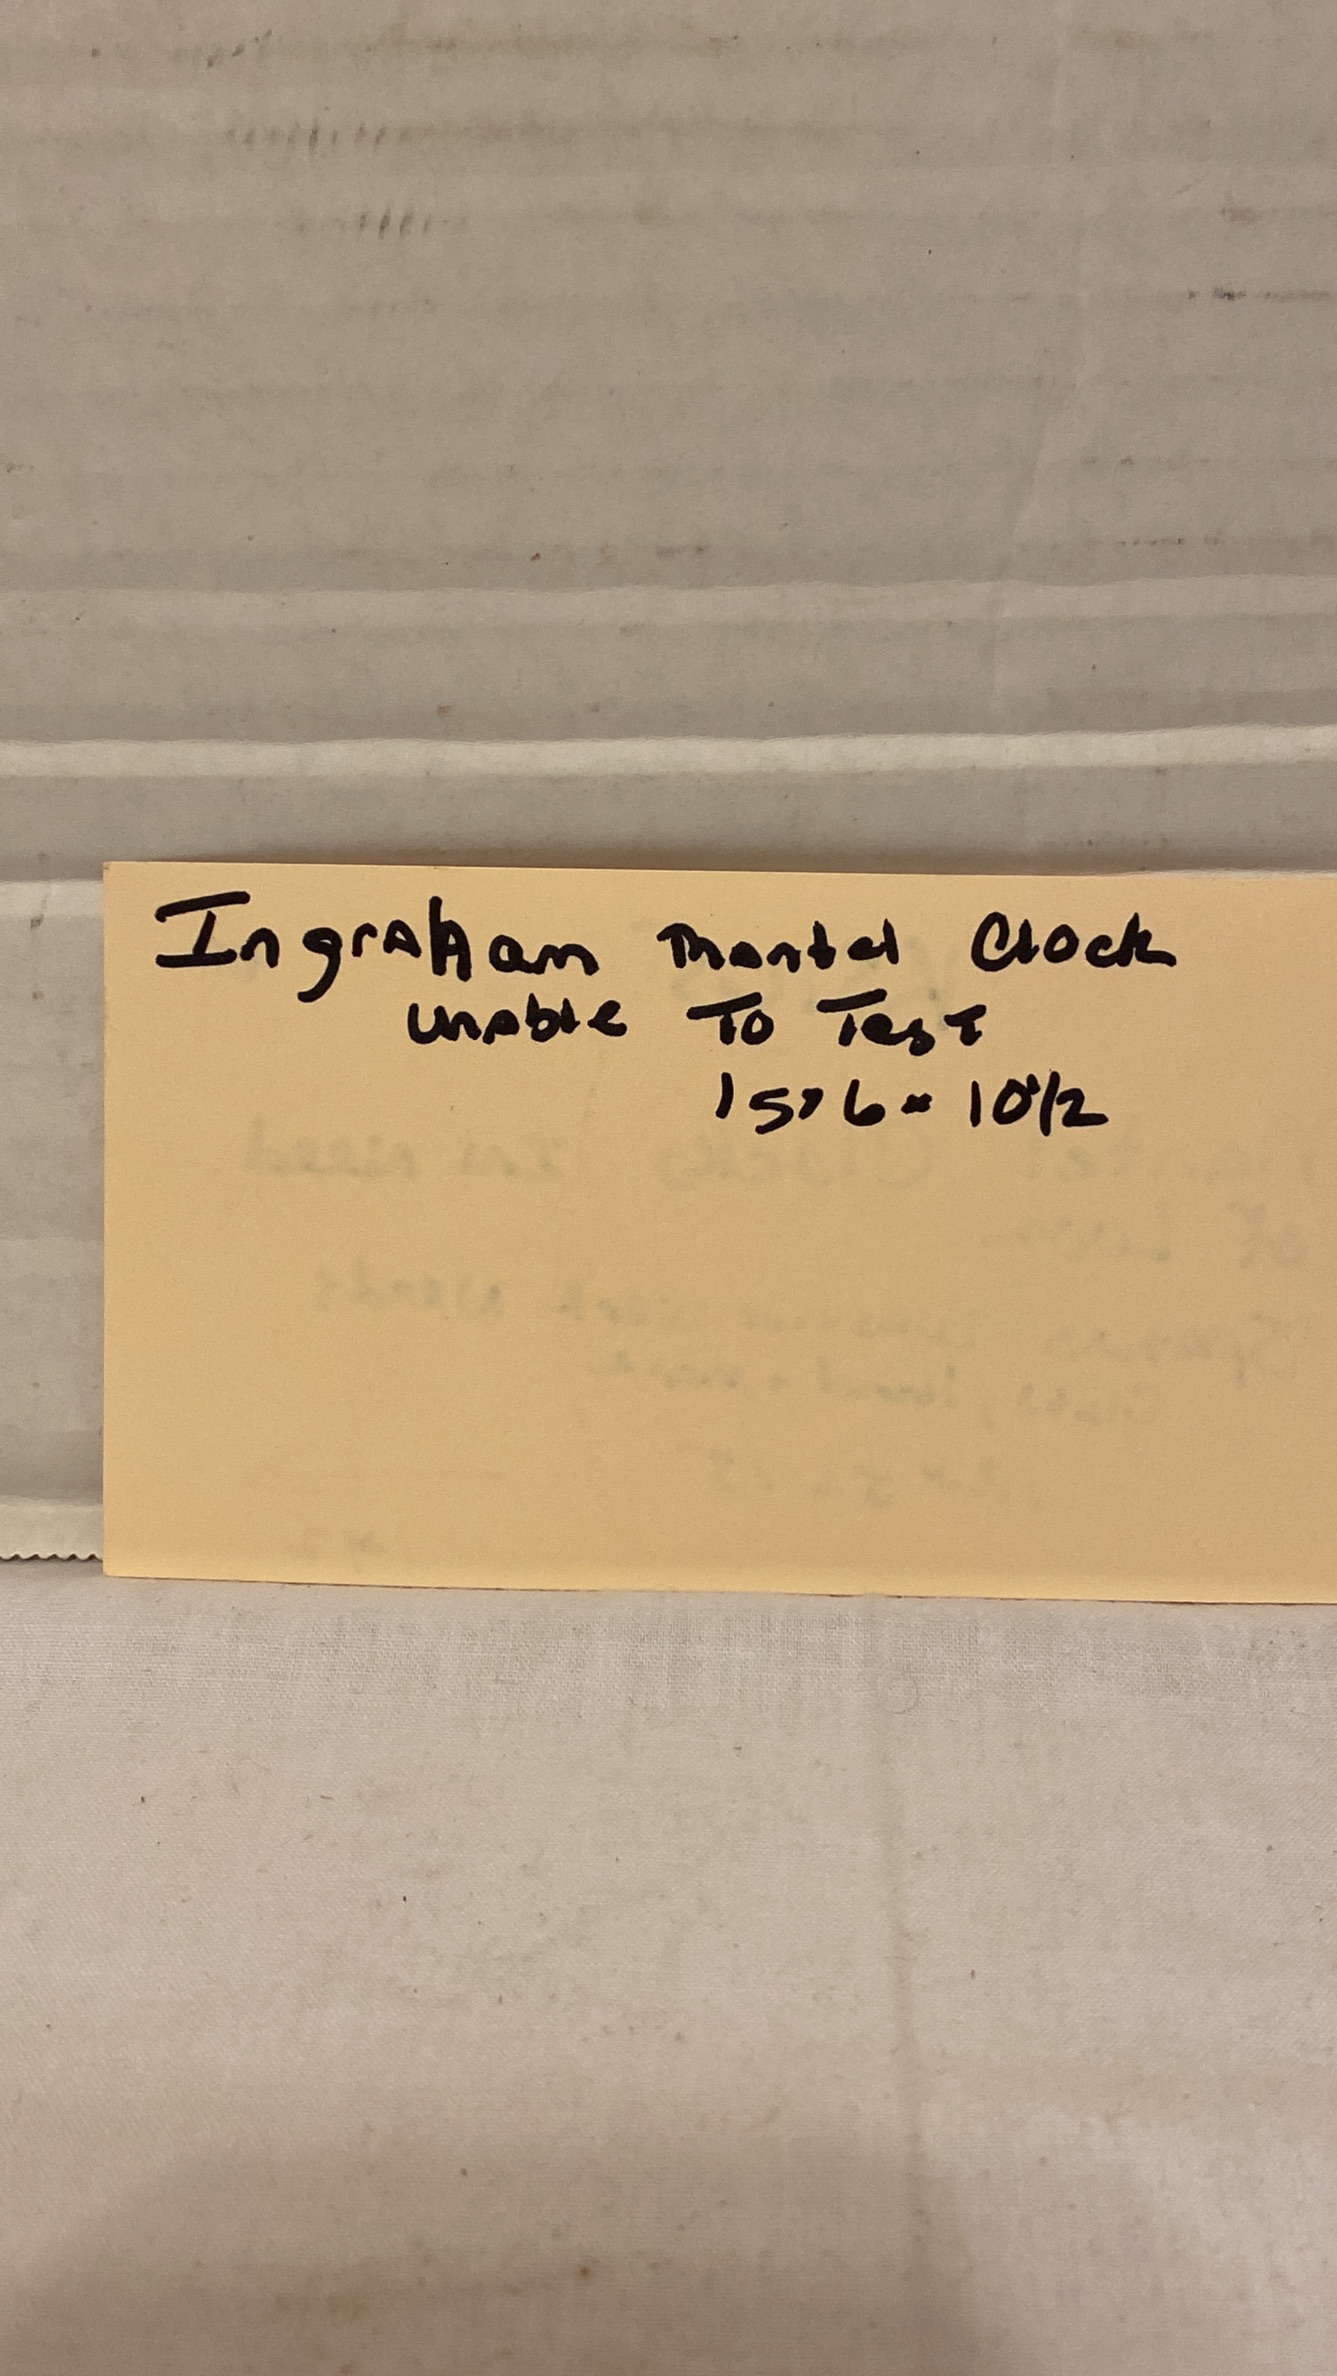 Ingraham Mantel Clock
Unable To Test
15x6x10 1/2